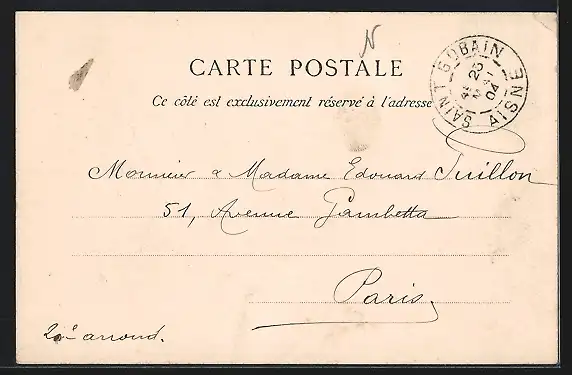 N
CARTE POSTALE
Ce côté est exclusivement réservé à l'adresse
SAINT-GOBAIN AISNE
25
04
Monsieur & Madame Edouard Juillon
51, Avenue Gambetta
Paris
20e arrond.